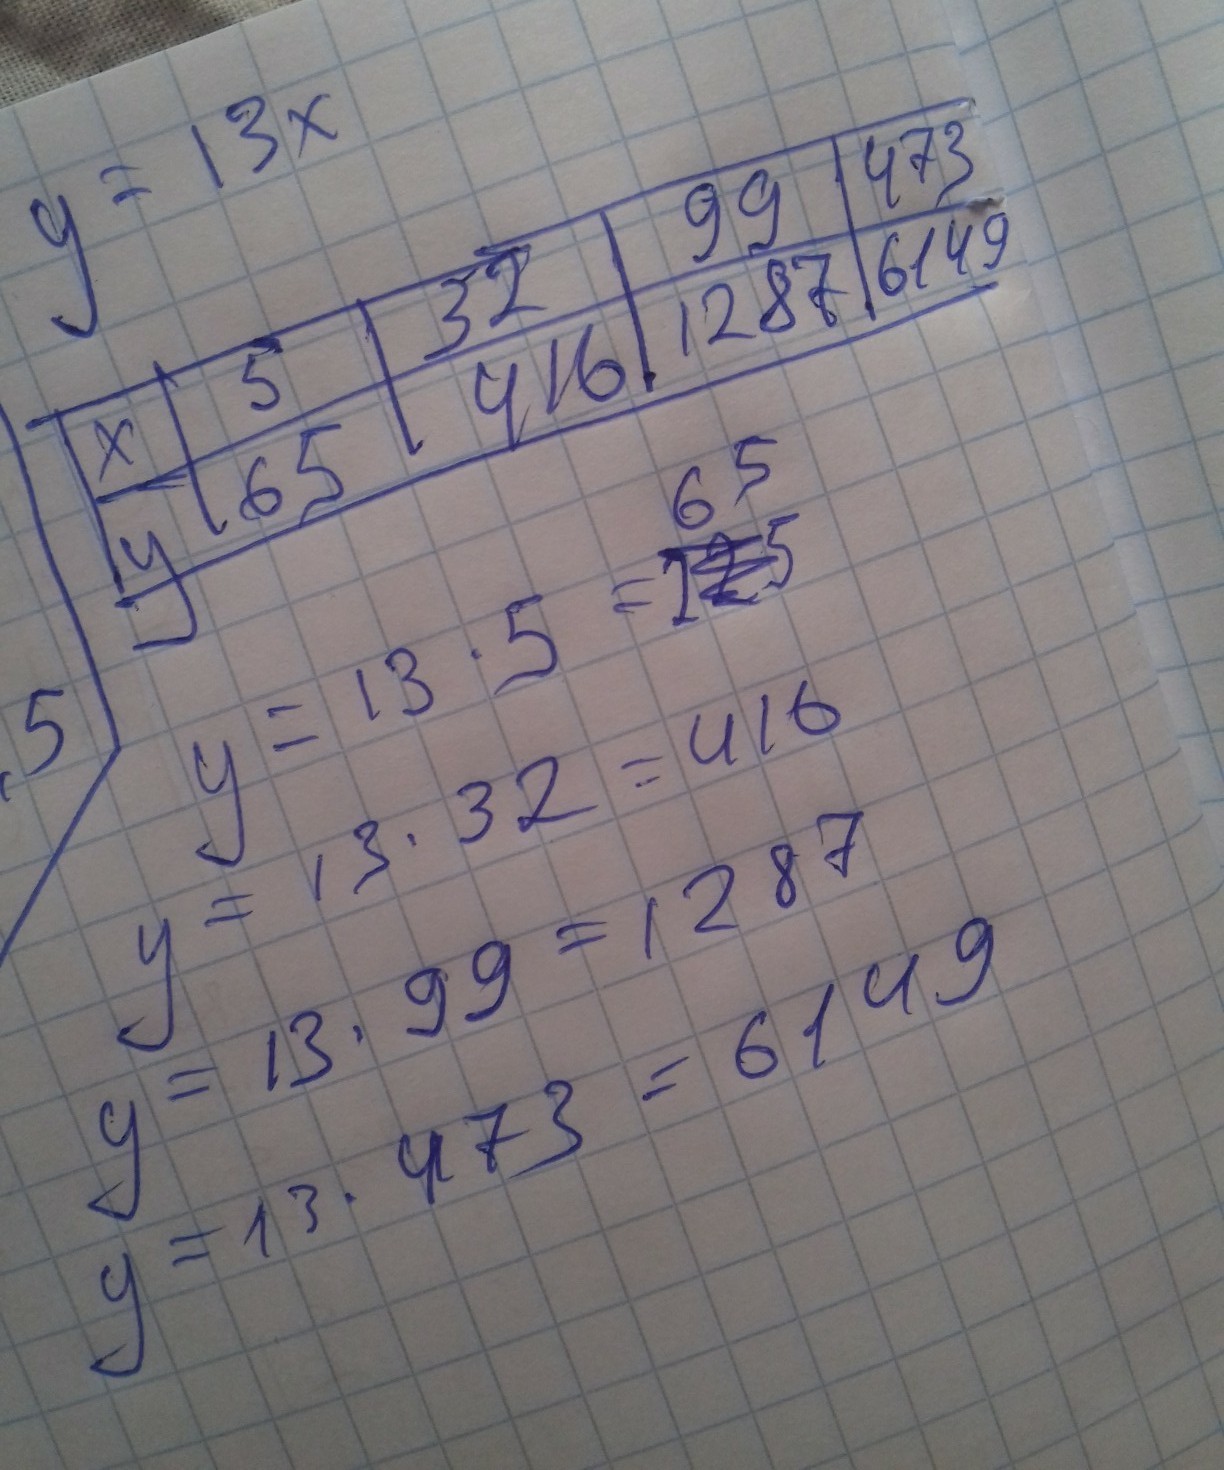 y = 13x
x 5 32 99 473
y 65 416 1287 6149
65
y = 13 · 5 = 125
y = 13 · 32 = 416
y = 13 · 99 = 1287
y = 13 · 473 = 6149
,5